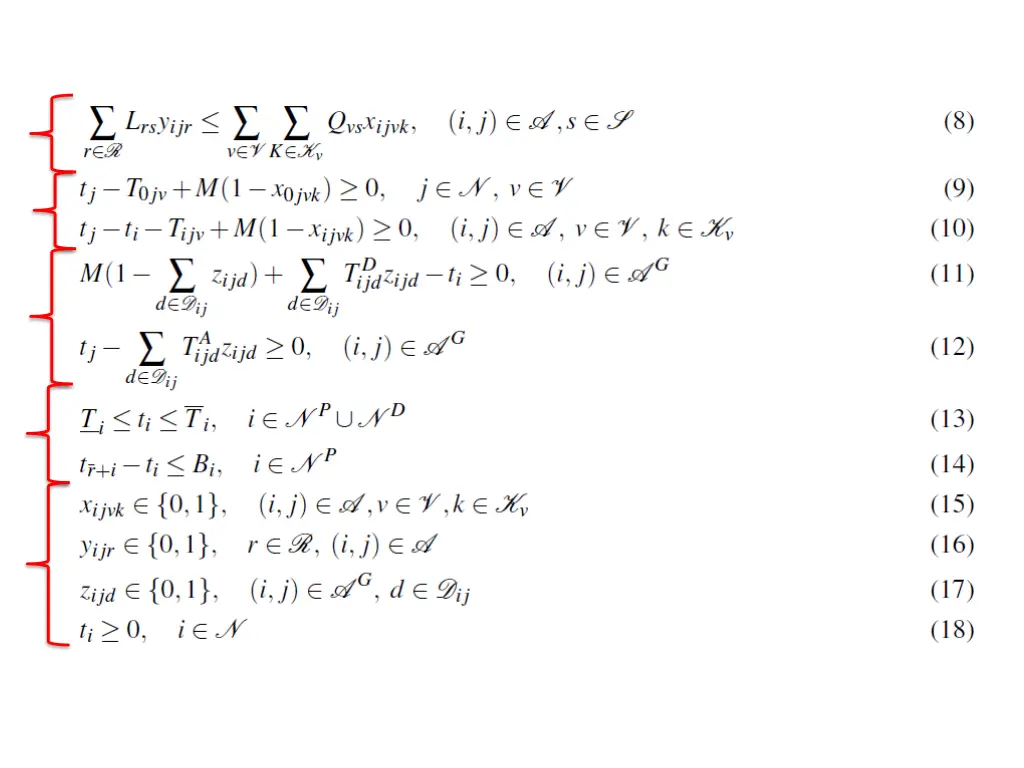 ∑_{r∈ℛ} L_{rs} y_{ijr} ≤ ∑_{v∈𝒱} ∑_{K∈𝒦_v} Q_{vs} x_{ijvk}, (i, j) ∈ 𝒜, s ∈ 𝒮 (8)
t_j − T_{0jv} + M(1 − x_{0jvk}) ≥ 0, j ∈ 𝒩, v ∈ 𝒱 (9)
t_j − t_i − T_{ijv} + M(1 − x_{ijvk}) ≥ 0, (i, j) ∈ 𝒜, v ∈ 𝒱, k ∈ 𝒦_v (10)
M(1 − ∑_{d∈𝒟_{ij}} z_{ijd}) + ∑_{d∈𝒟_{ij}} T^D_{ijd} z_{ijd} − t_i ≥ 0, (i, j) ∈ 𝒜^G (11)
t_j − ∑_{d∈𝒟_{ij}} T^A_{ijd} z_{ijd} ≥ 0, (i, j) ∈ 𝒜^G (12)
T̲_i ≤ t_i ≤ T̅_i, i ∈ 𝒩^P ∪ 𝒩^D (13)
t_{r̄+i} − t_i ≤ B_i, i ∈ 𝒩^P (14)
x_{ijvk} ∈ {0, 1}, (i, j) ∈ 𝒜, v ∈ 𝒱, k ∈ 𝒦_v (15)
y_{ijr} ∈ {0, 1}, r ∈ ℛ, (i, j) ∈ 𝒜 (16)
z_{ijd} ∈ {0, 1}, (i, j) ∈ 𝒜^G, d ∈ 𝒟_{ij} (17)
t_i ≥ 0, i ∈ 𝒩 (18)